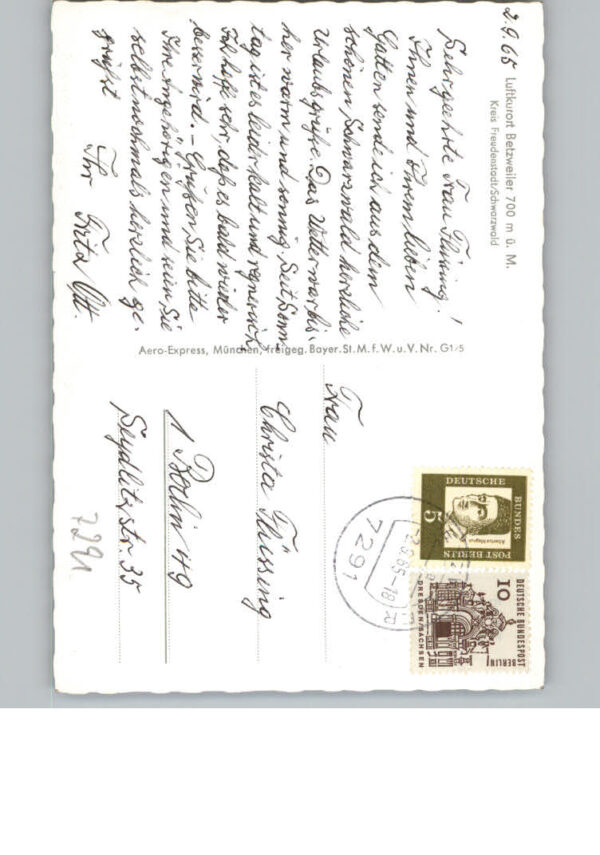 2.9.65
Luftkurort Betzweiler 700 m ü. M.
Kreis Freudenstadt/Schwarzwald
Sehrgehrte Frau Flüssing!
Ihnen und Ihrem lieben
Gatten sende ich aus dem
schönen Schwarzwald herzliche
Urlaubsgrüße. Das Wetter war bis-
her warm und sonnig. Seit Sonn-
tag ist es leider kalt und regnerisch.
Ich hoffe sehr, daß es bald wieder
besser wird. – Grüßen Sie bitte
Ihre Angehörigen und seien Sie
selbst nochmals herzlich ge-
grüßt
Ihr Fritz Ott.
Aero-Express, München, freigeg. Bayer. St. M. f. W. u. V. Nr. G1/5
Frau
Christa Flüssing
1 Berlin 49
Seydlitzstr. 35
7291
DEUTSCHE
BUNDES
POST BERLIN
5
Albertus Magnus
DEUTSCHE BUNDESPOST
BERLIN
10
DRESDEN/SACHSEN
7291
2.9.65-18